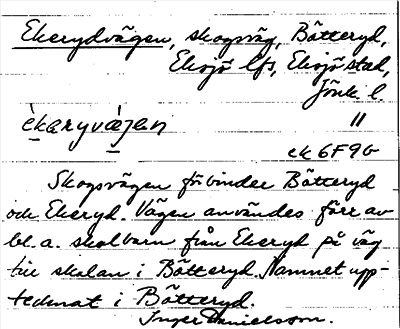 Ekerydvägen, skogsväg, Bötteryd,
Eksjö lfs, Eksjö stad,
Jönk. l.
èkaryvä̀jen "
ek 6F9b
Skogsvägen förbinder Bötteryd
och Ekeryd. Vägen användes förr av
bl.a. skolbarn från Ekeryd på väg
till skolan i Bötteryd. Namnet upp-
tecknat i Bötteryd.
Inger Danielsson.